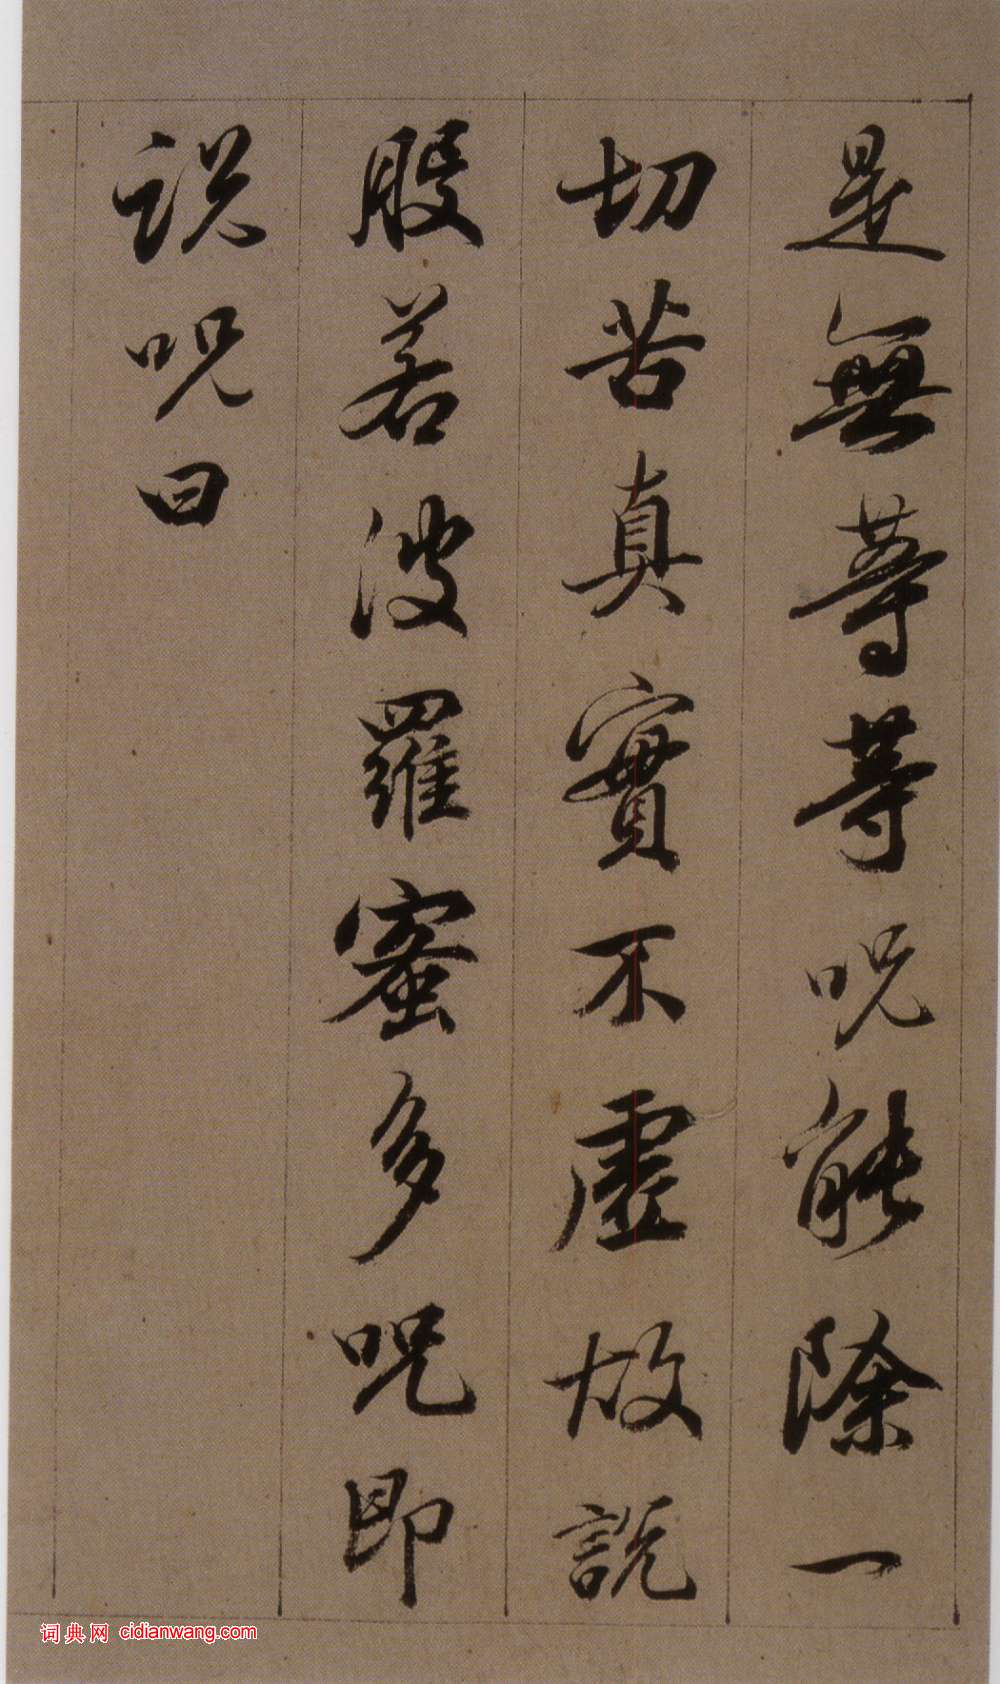 是無等等呪能除一
切苦真實不虛故說
般若波羅蜜多呪即
說呪曰
词典网 cidianwang.com